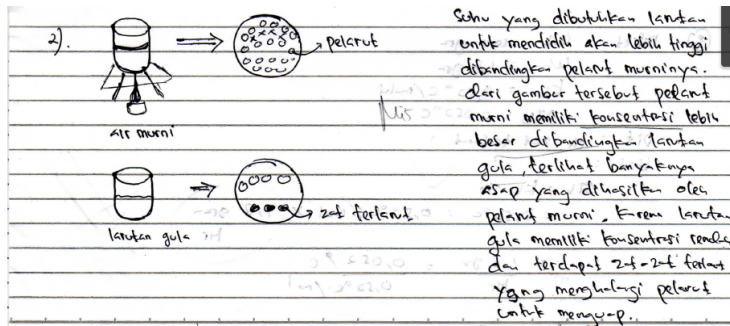 2).
pelarut
air murni
larutan gula
zat terlarut
Suhu yang dibutuhkan larutan
untuk mendidih akan lebih tinggi
dibandingkan pelarut murninya.
dari gambar tersebut pelarut
Mis murni memiliki konsentrasi lebih
besar dibandingkan larutan
gula, terlihat banyaknya
asap yang dihasilkan oleh
pelarut murni. karena larutan
gula memiliki konsentrasi rendah
dan terdapat zat-zat terlarut
yang menghalangi pelarut
untuk menguap.